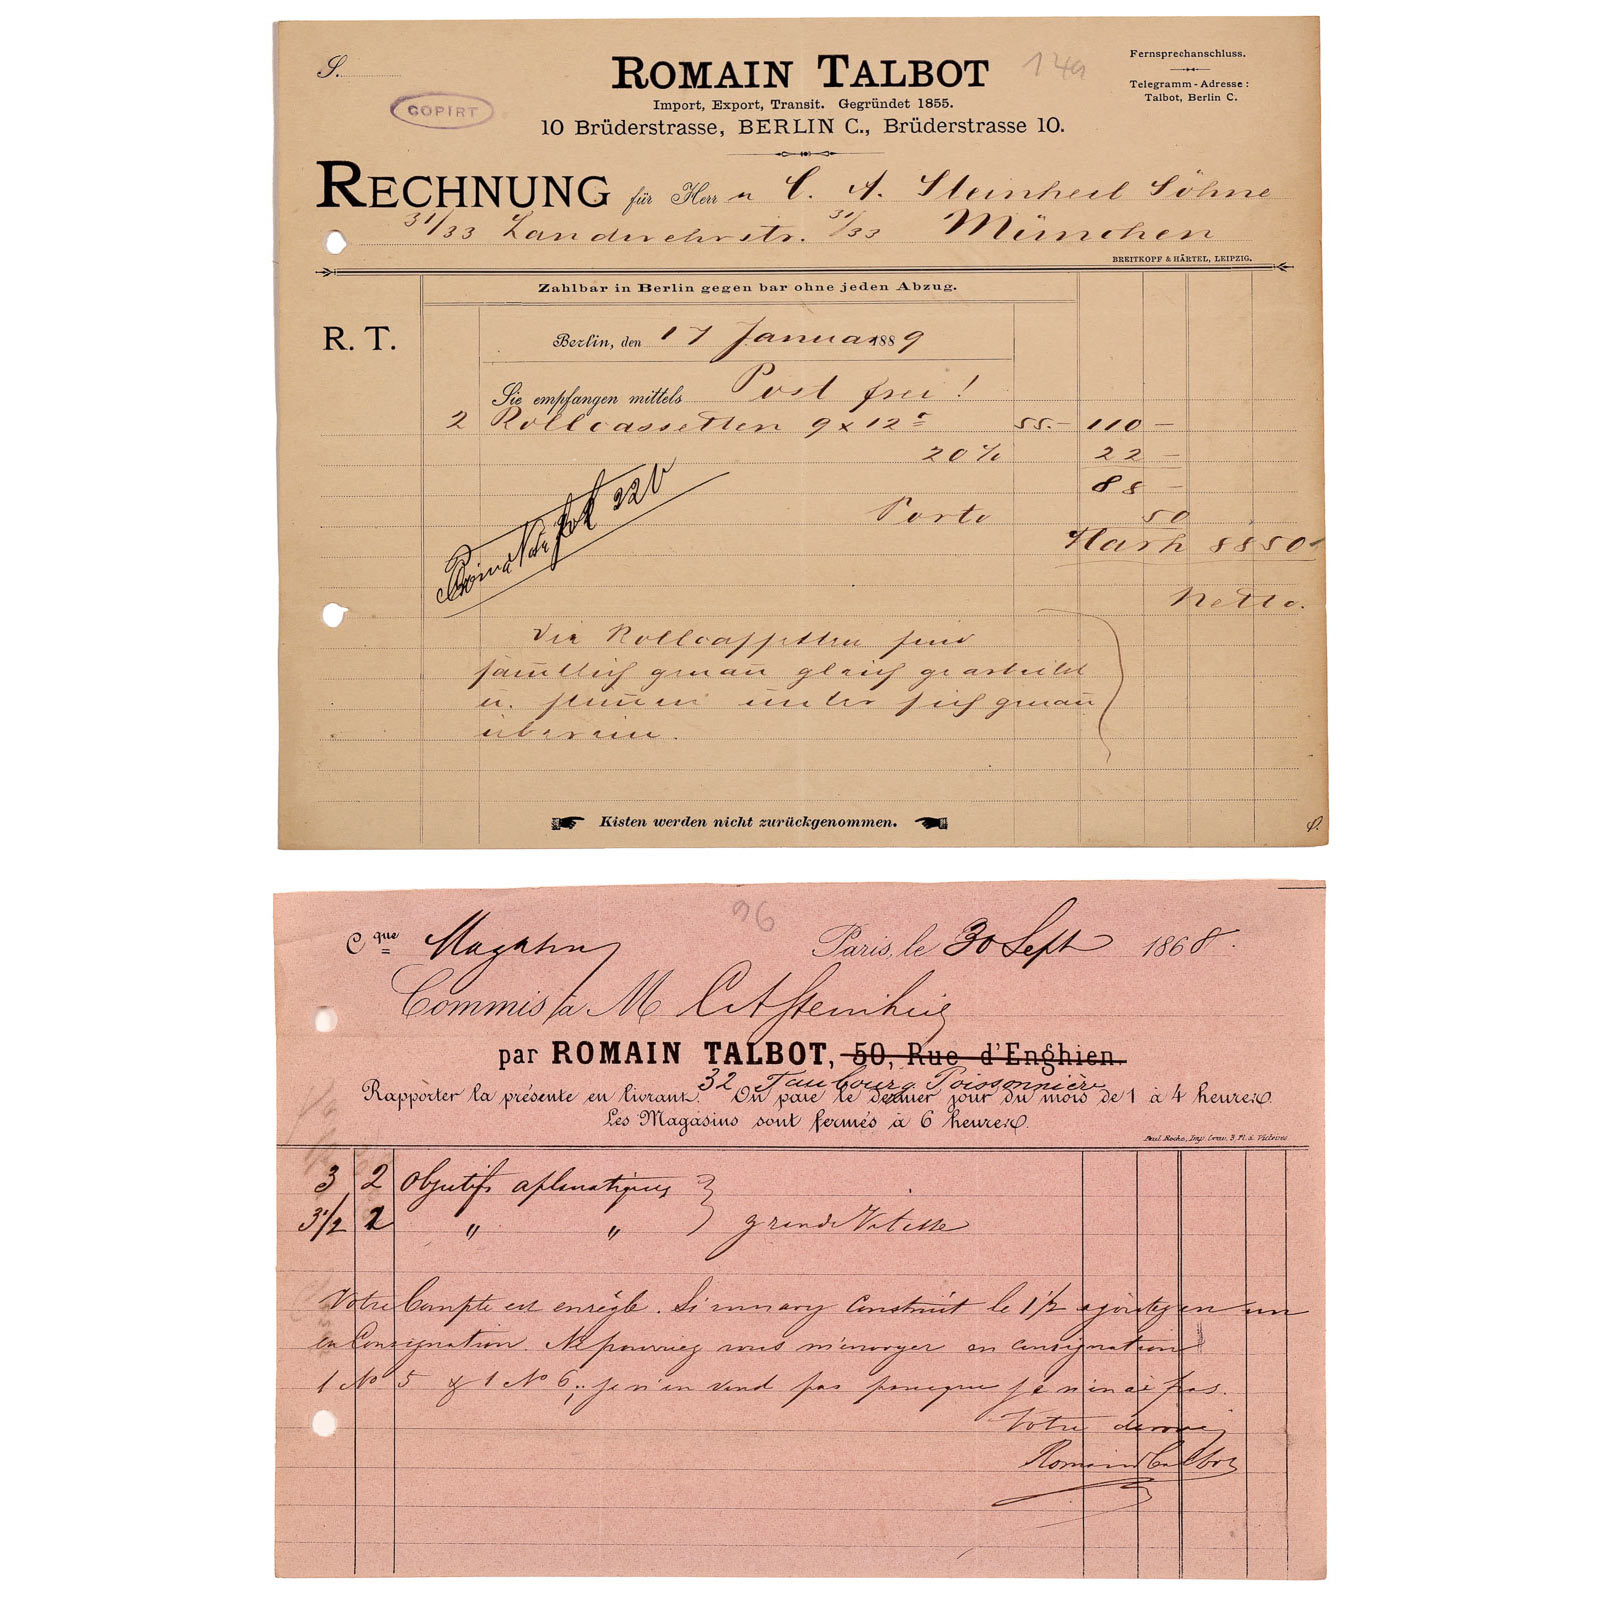 S.
ROMAIN TALBOT
149
Fernsprechanschluss.
Telegramm-Adresse:
Talbot, Berlin C.
COPIRT
Import, Export, Transit. Gegründet 1855.
10 Brüderstrasse, BERLIN C., Brüderstrasse 10.
RECHNUNG für Herr n C. A. Steinheil Söhne
31/33 Landwehrstr. 31/33 München
BREITKOPF & HÄRTEL, LEIPZIG.
Zahlbar in Berlin gegen bar ohne jeden Abzug.
R. T.
Berlin, den 17 Januar 1889
Sie empfangen mittels Post frei!
2 Rollcassetten 9 x 12 55.- 110 -
20% 22 -
88 -
Porto 50
Mark 88 50
Netto.
Prima Nota fol 220
Die Rollcassetten sind
sämtlich genau gleich gearbeitet
u. stimmen unter sich genau
überein.
Kisten werden nicht zurückgenommen.
96
Cque Magasin Paris, le 30 Sept 1868.
Commis à M C A Steinheil
par ROMAIN TALBOT, 50, Rue d'Enghien.
32 Faubourg Poissonnière
Rapporter la présente en livrant. On paie le dernier jour du mois de 1 à 4 heures.
Les Magasins sont fermés à 6 heures.
Paul Roche, Imp. Grav. 3, Pl. d. Victoires
3 2 Objectifs aplanatiques
3 1/2 2 " " grande Vitesse
Votre Compte est en règle. Si construit le 1 1/2 ajoutez en un
en Consignation. Ne pourriez vous m'envoyer en consignation
1 No 5 & 1 No 6; je n'en vend pas parceque je n'en ai pas.
Votre dévoué
Romain Talbot